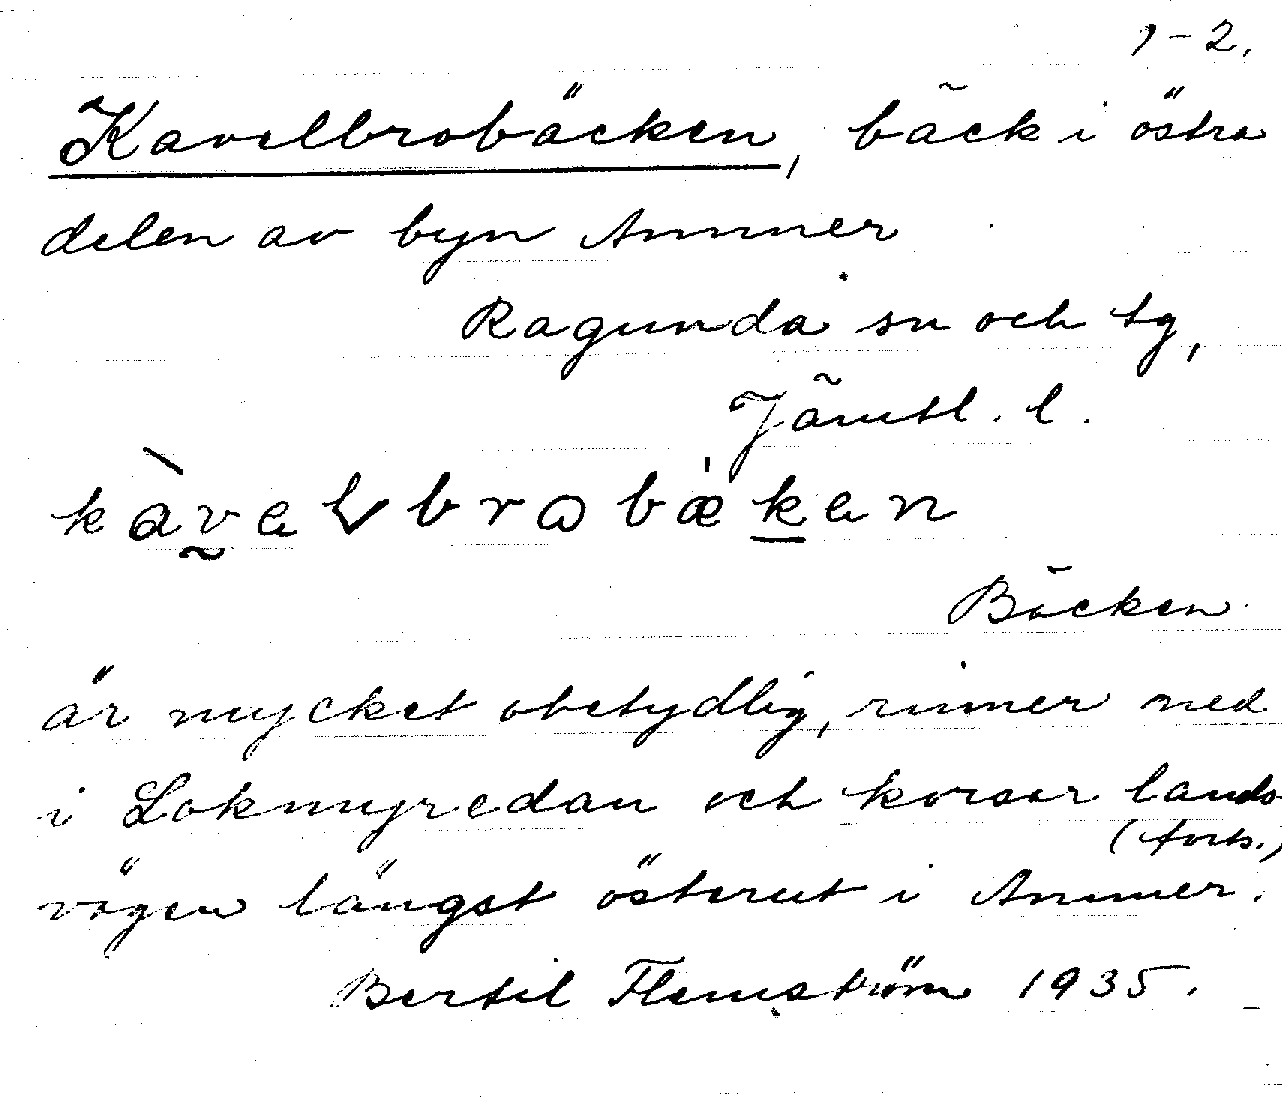 1-2.
Kavelbrobäcken, bäck i östra
delen av byn Ammer
Ragunda sn och tg,
Jämtl. l.
kàvelbrobæken
Bäcken
är mycket obetydlig, rinner ned
i Lokmyredan och korsar lands-
(forts.)
vägen längst österut i Ammer.
Bertil Flemström 1935.